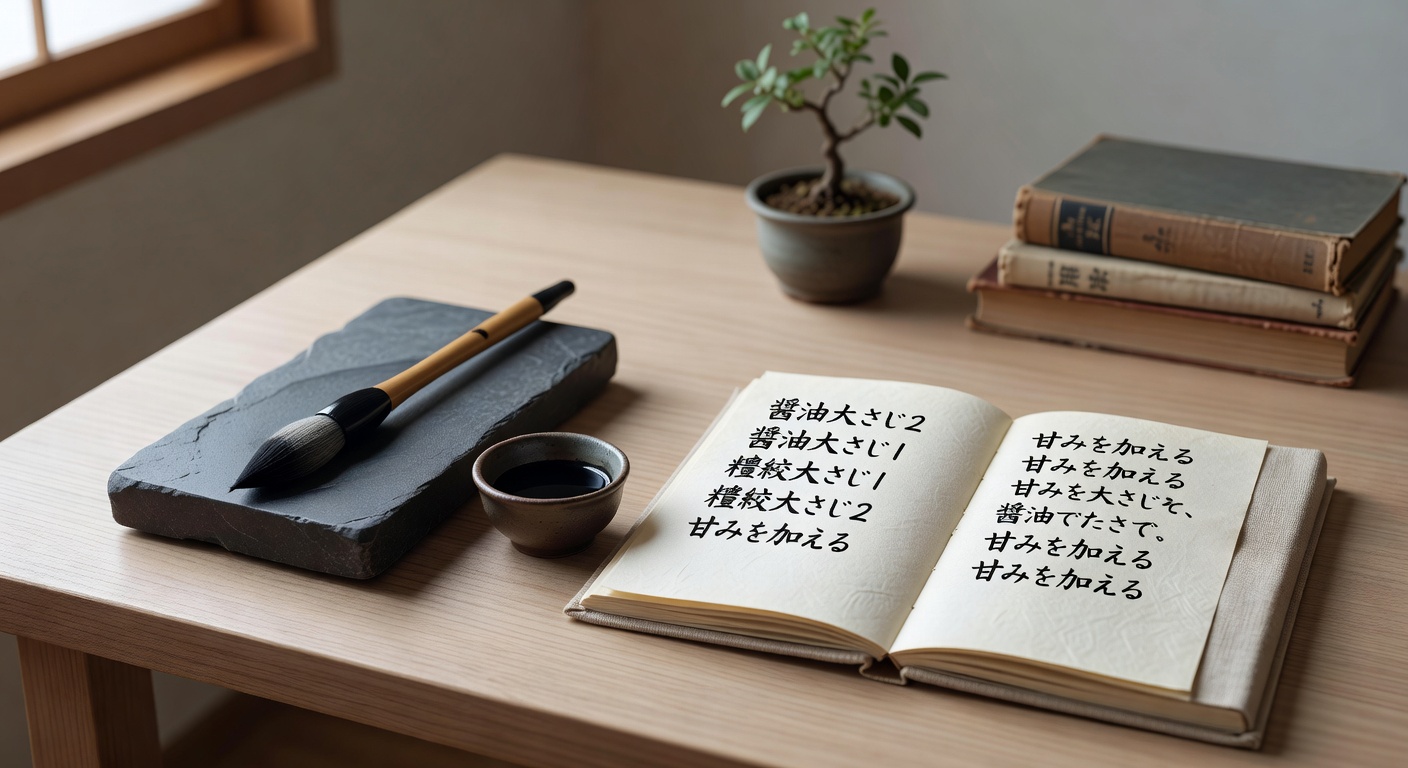 醤油大さじ2
醤油大さじ1
糧絞大さじ1
糧絞大さじ2
甘みを加える
甘みを加える
甘みを加える
甘みを大さじそ、
醤油でたさで。
甘みを加える
甘みを加える